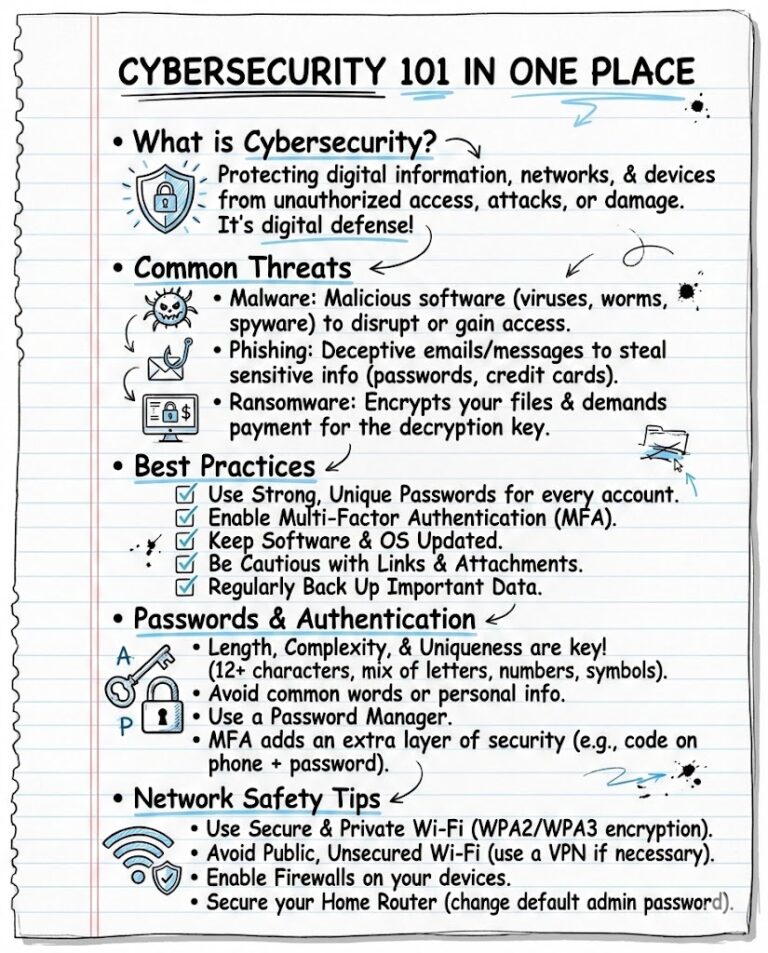 CYBERSECURITY 101 IN ONE PLACE
• What is Cybersecurity?
Protecting digital information, networks, & devices
from unauthorized access, attacks, or damage.
It's digital defense!
• Common Threats
• Malware: Malicious software (viruses, worms,
spyware) to disrupt or gain access.
• Phishing: Deceptive emails/messages to steal
sensitive info (passwords, credit cards).
$
• Ransomware: Encrypts your files & demands
payment for the decryption key.
• Best Practices
Use Strong, Unique Passwords for every account.
Enable Multi-Factor Authentication (MFA).
Keep Software & OS Updated.
Be Cautious with Links & Attachments.
Regularly Back Up Important Data.
• Passwords & Authentication
A
P
• Length, Complexity, & Uniqueness are key!
(12+ characters, mix of letters, numbers, symbols).
• Avoid common words or personal info.
• Use a Password Manager.
• MFA adds an extra layer of security (e.g., code on
phone + password).
• Network Safety Tips
• Use Secure & Private Wi-Fi (WPA2/WPA3 encryption).
• Avoid Public, Unsecured Wi-Fi (use a VPN if necessary).
• Enable Firewalls on your devices.
• Secure your Home Router (change default admin password).